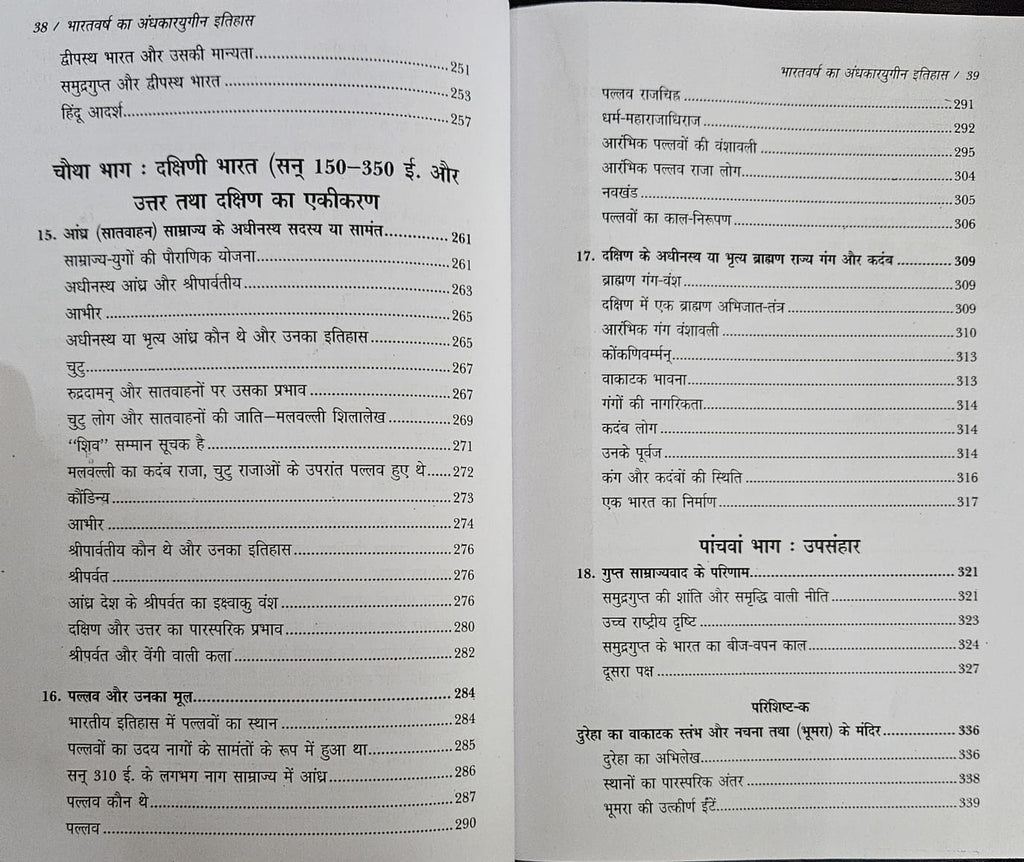 38 / भारतवर्ष का अंधकारयुगीन इतिहास
द्वीपस्थ भारत और उसकी मान्यता.................................................251
समुद्रगुप्त और द्वीपस्थ भारत.................................................253
हिंदू आदर्श.................................................257
चौथा भाग : दक्षिणी भारत (सन् 150–350 ई. और
उत्तर तथा दक्षिण का एकीकरण
15. आंध्र (सातवाहन) साम्राज्य के अधीनस्थ सदस्य या सामंत............261
साम्राज्य-युगों की पौराणिक योजना.................................................261
अधीनस्थ आंध्र और श्रीपार्वतीय.................................................263
आभीर.................................................265
अधीनस्थ या भृत्य आंध्र कौन थे और उनका इतिहास...............265
चुटु.................................................267
रुद्रदामन् और सातवाहनों पर उसका प्रभाव.........................267
चुटु लोग और सातवाहनों की जाति–मलवल्ली शिलालेख............269
“शिव” सम्मान सूचक है.................................................271
मलवल्ली का कदंब राजा, चुटु राजाओं के उपरांत पल्लव हुए थे.....272
कौंडिन्य.................................................273
आभीर.................................................274
श्रीपार्वतीय कौन थे और उनका इतिहास..............................276
श्रीपर्वत.................................................276
आंध्र देश के श्रीपर्वत का इक्ष्वाकु वंश..............................276
दक्षिण और उत्तर का पारस्परिक प्रभाव..............................280
श्रीपर्वत और वेंगी वाली कला.................................................282
16. पल्लव और उनका मूल.................................................284
भारतीय इतिहास में पल्लवों का स्थान..............................284
पल्लवों का उदय नागों के सामंतों के रूप में हुआ था..............285
सन् 310 ई. के लगभग नाग साम्राज्य में आंध्र....................286
पल्लव कौन थे.................................................287
पल्लव.................................................290
भारतवर्ष का अंधकारयुगीन इतिहास / 39
पल्लव राजचिह्न.................................................291
धर्म-महाराजाधिराज.................................................292
आरंभिक पल्लवों की वंशावली.................................................295
आरंभिक पल्लव राजा लोग.................................................304
नवखंड.................................................305
पल्लवों का काल-निरूपण.................................................306
17. दक्षिण के अधीनस्थ या भृत्य ब्राह्मण राज्य गंग और कदंब.........309
ब्राह्मण गंग-वंश.................................................309
दक्षिण में एक ब्राह्मण अभिजात-तंत्र..............................309
आरंभिक गंग वंशावली.................................................310
कोंकणिवर्म्मन्.................................................313
वाकाटक भावना.................................................313
गंगों की नागरिकता.................................................314
कदंब लोग.................................................314
उनके पूर्वज.................................................314
कंग और कदंबों की स्थिति.................................................316
एक भारत का निर्माण.................................................317
पांचवां भाग : उपसंहार
18. गुप्त साम्राज्यवाद के परिणाम.................................................321
समुद्रगुप्त की शांति और समृद्धि वाली नीति....................321
उच्च राष्ट्रीय दृष्टि.................................................323
समुद्रगुप्त के भारत का बीज-वपन काल..............................324
दूसरा पक्ष.................................................327
परिशिष्ट-क
दुरेहा का वाकाटक स्तंभ और नचना तथा (भूमरा) के मंदिर...............336
दुरेहा का अभिलेख.................................................336
स्थानों का पारस्परिक अंतर.................................................338
भूमरा की उत्कीर्ण ईंटें.................................................339